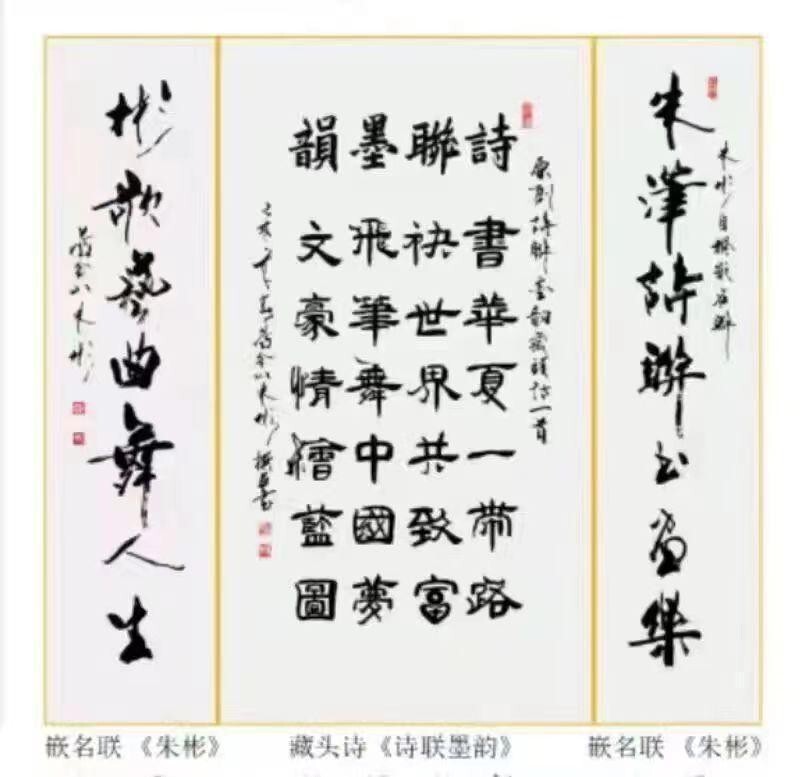 朱彬自撰嵌名聯
朱筆詩聯书畫樂
原創詩聯墨韻藏頭詩一首
詩書華夏一帶路
聯袂世界共致富
墨飛筆舞中國夢
韻文豪情繪藍圖
己亥年朱彬撰并書
彬歌藝曲舞人生
朱彬
嵌名联《朱彬》
藏头诗《诗联墨韵》
嵌名联《朱彬》